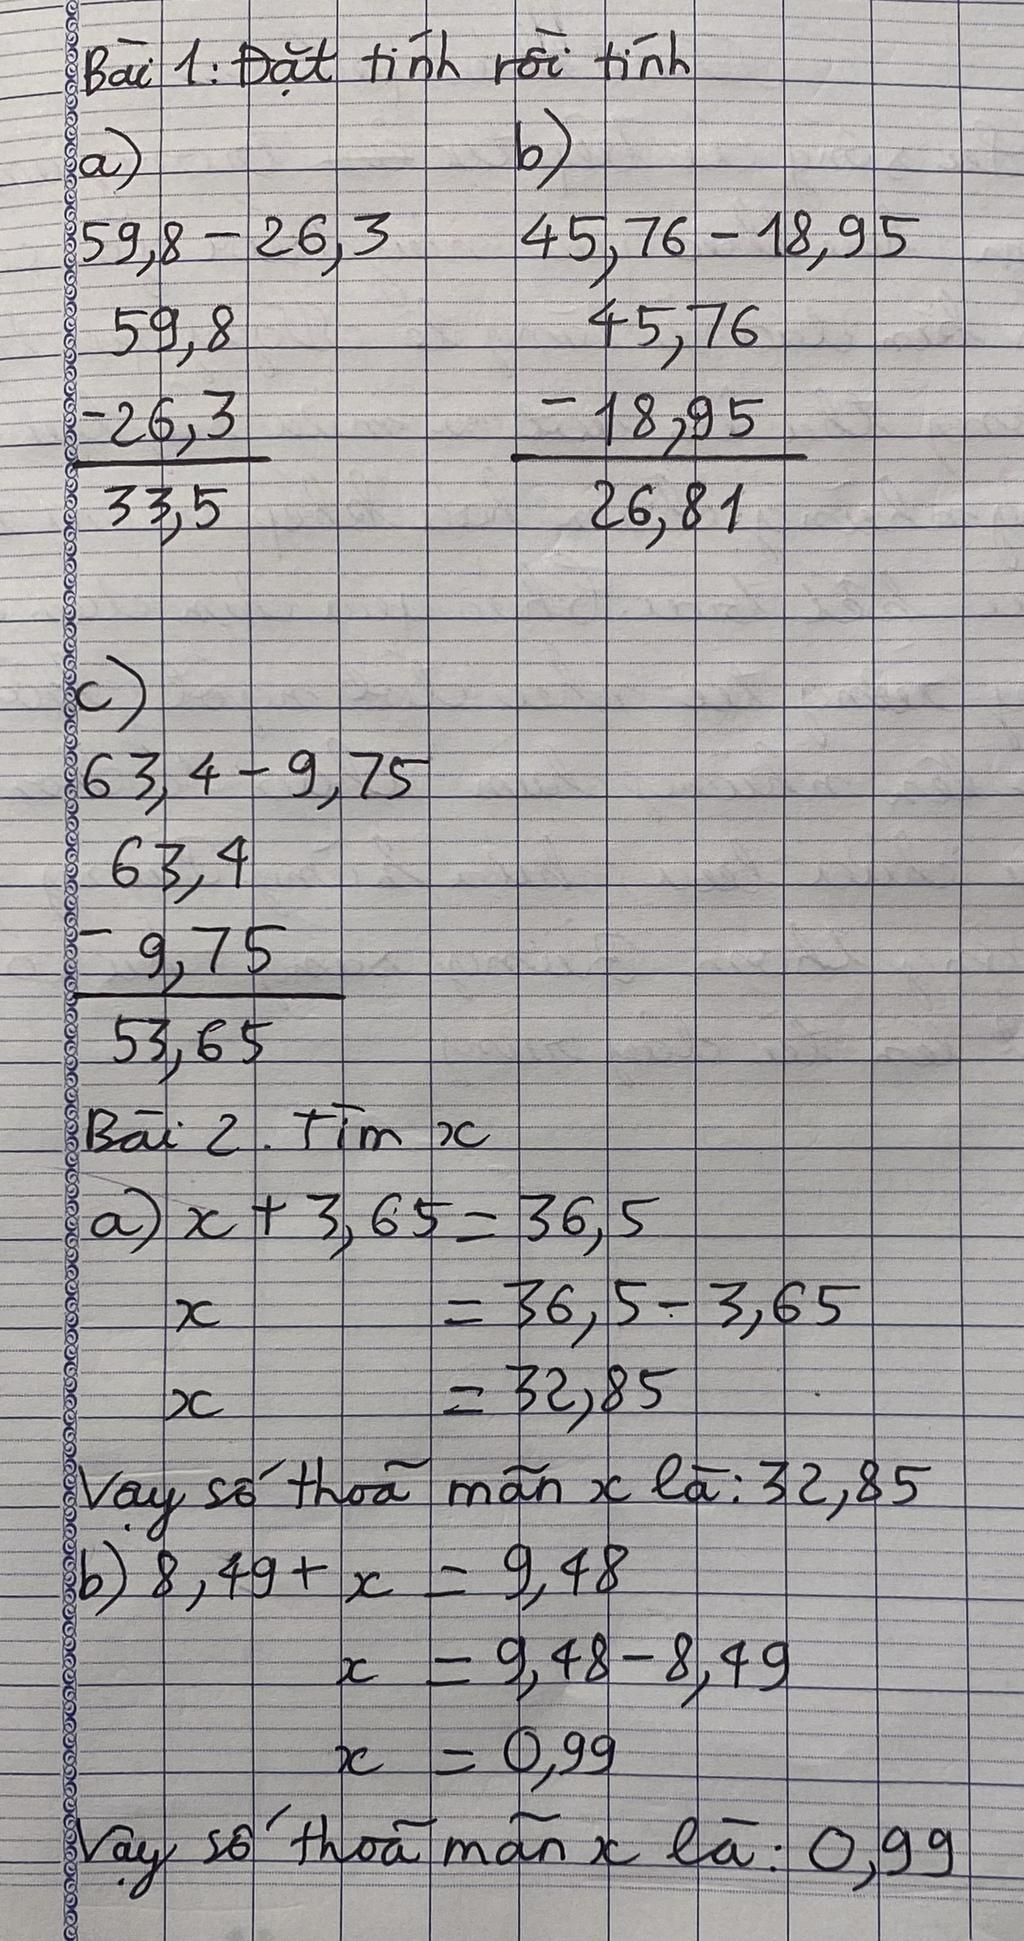 Bài 1: Đặt tính rồi tính
a) b)
59,8 - 26,3 45,76 - 18,95
59,8 45,76
-26,3 -18,95
33,5 26,81
c)
63,4 - 9,75
63,4
- 9,75
53,65
Bài 2. Tìm x
a) x + 3,65 = 36,5
x = 36,5 - 3,65
x = 32,85
Vậy số thoã mãn x là: 32,85
b) 8,49 + x = 9,48
x = 9,48 - 8,49
x = 0,99
Vậy số thoã mãn x là: 0,99